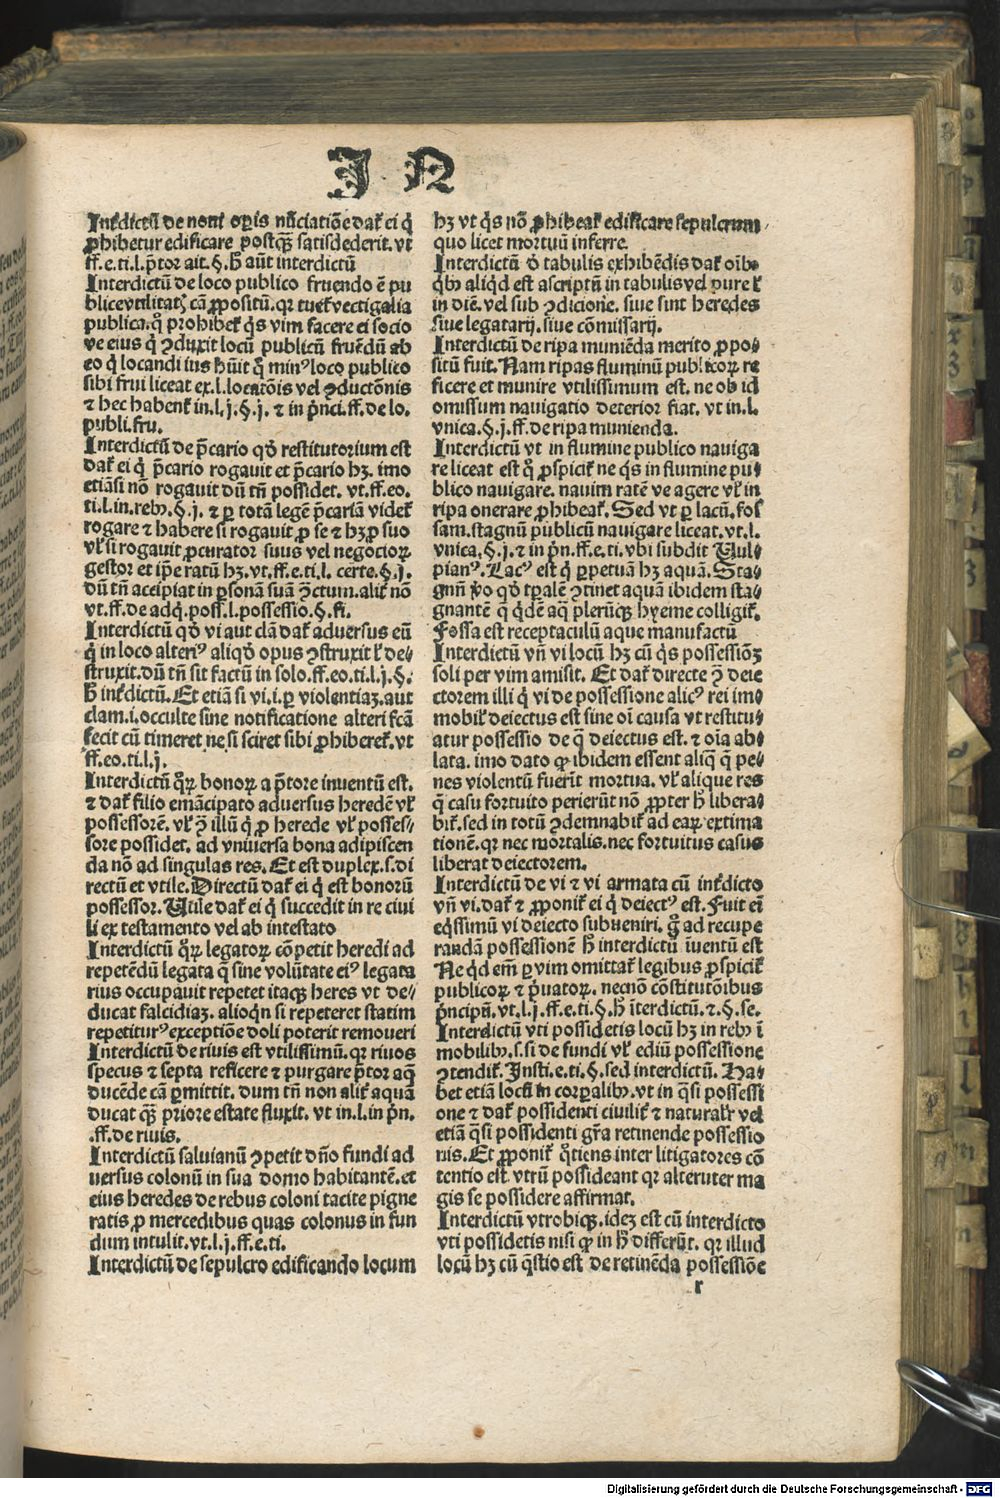 I N
Interdictū de noui oꝑis nūciatiōe dat̄ ei q̇
ꝓhibetur edificare postqꝫ satisdederit. vt
ff. e. ti. l. p̄tor ait. §. h̄ aūt interdictū
Interdictū de loco publico fruendo ē pu
blice vtilitatꝭ cā ꝓpositū. qꝛ tuet̄ vectigalia
publica. q̄ prohibet̄ q̇s vim facere ei socio
ve eius q̇ ꝯduxit locū publicū fruēdū ab
eo q̇ locandi ius h̄uit q̄ minꝰ loco publico
sibi frui liceat ex. l. locatōnis vel ꝯductōnis
⁊ hec habent̄ in. l. j. §. j. ⁊ in p̄nci. ff. de lo.
publi. fru.
Interdictū de p̄cario qđ restitutorium est
dat̄ ei q̇ p̄cario rogauit et p̄cario hꝫ. imo
etiāsi nō rogauit dū tn̄ possidet. vt. ff. eo.
ti. l. in. rebꝫ. §. j. ⁊ ꝑ totā legē p̄cariā videt̄
rogare ⁊ habere si rogauit ꝓ se ⁊ hꝫ ꝓ suo
vl̄ si rogauit ꝓcurator suus vel negocioꝝ
gestor et ip̄e ratū hꝫ. vt. ff. e. ti. l. certe. §. j.
dū tn̄ accipiat in ꝑsonā suā ꝯctum. alit̄ nō
vt. ff. de adq̇. poss. l. possessio. §. fi.
Interdictū qđ vi aut clā dat̄ aduersus eū
q̇ in loco alteriꝰ aliqđ opus ꝯstruxit l̄ de⸗
struxit. dū tn̄ sit factū in solo. ff. eo. ti. l. j. §.
h̄ int̄dictū. Et etiā si vi. i. ꝑ violentiaꝫ. aut
clam. i. occulte sine notificatione alteri fcā
fecit cū timeret ne si sciret sibi ꝓhiberet̄. vt
ff. eo. ti. l. j.
Interdictū qꝛ̄ bonoꝝ a p̄tore inuentū est.
⁊ dat̄ filio emācipato aduersus heredē vl̄
possessorē. vl̄ ꝯ̄ illū q̇ ꝓ herede vl̄ posses⸗
sore possidet. ad vniuersa bona adipiscen
da nō ad singulas res. Et est duplex. s. di
rectū et vtile. Directū dat̄ ei q̇ est bonorū
possessor. Utile dat̄ ei q̇ succedit in re ciui
li ex testamento vel ab intestato
Interdictū qꝛ̄ legatoꝝ cōpetit heredi ad
repetēdū legata q̄ sine volūtate eiꝰ legata
rius occupauit repetet itaqꝫ heres vt de⸗
ducat falcidiaꝫ. alioqn̄ si repeteret statim
repetiturꝰ exceptiōe doli poterit remoueri
Interdictū de riuis est vtilissimū. qꝛ riuos
specus ⁊ septa reficere ⁊ purgare p̄tor aq̄
ducēde cā ꝑmittit. dum tn̄ non alit̄ aquā
ducat qꝫ priore estate fluxit. vt in. l. in pn̄.
.ff. de riuis.
Interdictū saluianū ꝯpetit dn̄o fundi ad
uersus colonū in sua domo habitantē. et
eius heredes de rebus coloni tacite pigne
ratis ꝓ mercedibus quas colonus in fun
dum intulit. vt. l. j. ff. e. ti.
Interdictū de sepulcro edificando locum
hꝫ vt q̇s nō ꝓhibeat̄ edificare sepulcrum
quo licet mortuū inferre.
Interdictū ď tabulis exhibēdis dat̄ oībꝰ
qb̄ꝫ aliqđ est ascriptū in tabulis vel pure l̄
in diē. vel sub ꝯdicione. siue sint heredes
siue legatarij. siue cōmissarij.
Interdictū de ripa muniēda merito ꝓpo⸗
situ fuit. Nam ripas fluminū publicoꝝ re
ficere et munire vtilissimum est. ne ob id
omissum nauigatio deterior fiat. vt in. l.
vnica. §. j. ff. de ripa munienda.
Interdictū vt in flumine publico nauiga
re liceat est q̄ ꝓspicit̄ ne q̇s in flumine pu⸗
blico nauigare. nauim ratē ve agere vl̄ in
ripa onerare ꝓhibeat̄. Sed vt ꝑ lacū. fos
sam. stagnū publicū nauigare liceat. vt. l.
vnica. §. j. ⁊ in pn̄. ff. e. ti. vbi subdit Uul⸗
pianꝰ. Lacꝰ est q̇ ꝑpetuā hꝫ aquā. Sta⸗
gnū v̄o qđ tꝑale ꝯtinet aquā ibidem sta⸗
gnantē q̄ q̇dē aq̄ plerūqꝫ hyeme colligit̄.
Fossa est receptaculū aque manufactū
Interdictū vn̄ vi locū hꝫ cū q̇s possessiōꝫ
soli per vim amisit. Et dat̄ directe ꝯ̄ deie
ctorem illi q̇ vi de possessione alicꝰ rei im⸗
mobil̄ deiectus est sine oī causa vt restitu⸗
atur possessio de q̄ deiectus est. ⁊ oīa ab⸗
lata. imo dato ꝙ ibidem essent aliq̄ q̄ pe⸗
nes violentū fuerīt mortua. vl̄ alique res
q̄ casu fortuito perierūt nō ꝓpter h̄ libera⸗
bit̄. sed in totū ꝯdemnabit̄ ad eaꝝ extima
tionē. qꝛ nec mortalis. nec fortuitus casus
liberat deiectorem.
Interdictū de vi ⁊ vi armata cū int̄dicto
vn̄ vi. dat̄ ⁊ ꝓponit̄ ei q̇ deiectꝰ est. Fuit eī
eq̇ssimū vi deiecto subueniri. g̊ ad recupe
randā possessionē h̄ interdictū īuentū est
Ne q̇d em̄ ꝑ vim omittat̄ legibus ꝓspicit̄
publicoꝝ ⁊ ṗuatoꝝ. necnō cōstitutōibus
ṗncipū. vt. l. j. ff. e. ti. §. h̄ īterdictū. ⁊. §. se.
Interdictū vti possidetis locū hꝫ in rebꝫ ī
mobilibꝫ. s. si de fundi vl̄ ediū possessione
ꝯtendit̄. Insti. e. ti. §. sed interdictū. Ha⸗
bet etiā locū in corꝑalibꝫ. vt in q̄si possessi
one ⁊ dat̄ possidenti ciuilit̄ ⁊ naturalr̄ vel
etiā q̄si possidenti gr̄a retinende possessio
nis. Et ꝓponit̄ q̊tiens inter litigatores cō
tentio est. vtrū possideant qꝛ alteruter ma
gis se possidere affirmat.
Interdictū vtrobiqꝫ. ideꝫ est cū interdicto
vti possidetis nisi ꝙ in h̄ differūt. qꝛ illud
locū hꝫ cū q̄stio est de retinēda possessiōe
r
Digitalisierung gefördert durch die Deutsche Forschungsgemeinschaft - DFG